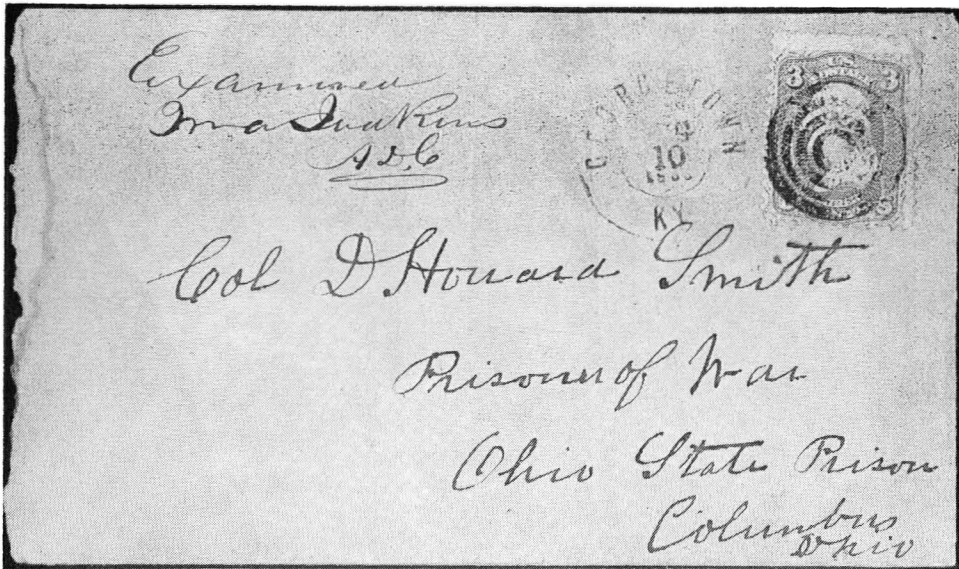 Examined
Wm A Judkins
ADC
GEORGETOWN
10
KY.
3 U.S. 3
Col D Howard Smith
Prisoner of War
Ohio State Prison
Columbus
Ohio